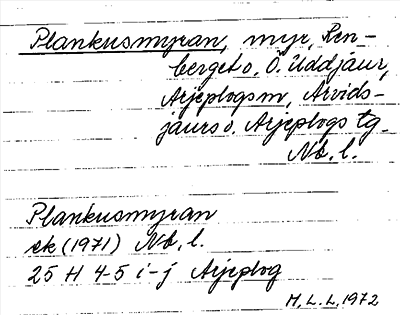 Plankusmyran, myr, Ren-
berget o. Ö. Uddjaur,
Arjeplogs m, Arvids-
jaurs o. Arjeplogs tg.
Nb. l.
Plankusmyran
ek (1971) Nb. l.
25 H 4-5 i-j Arjeplog
M. L. L, 1972